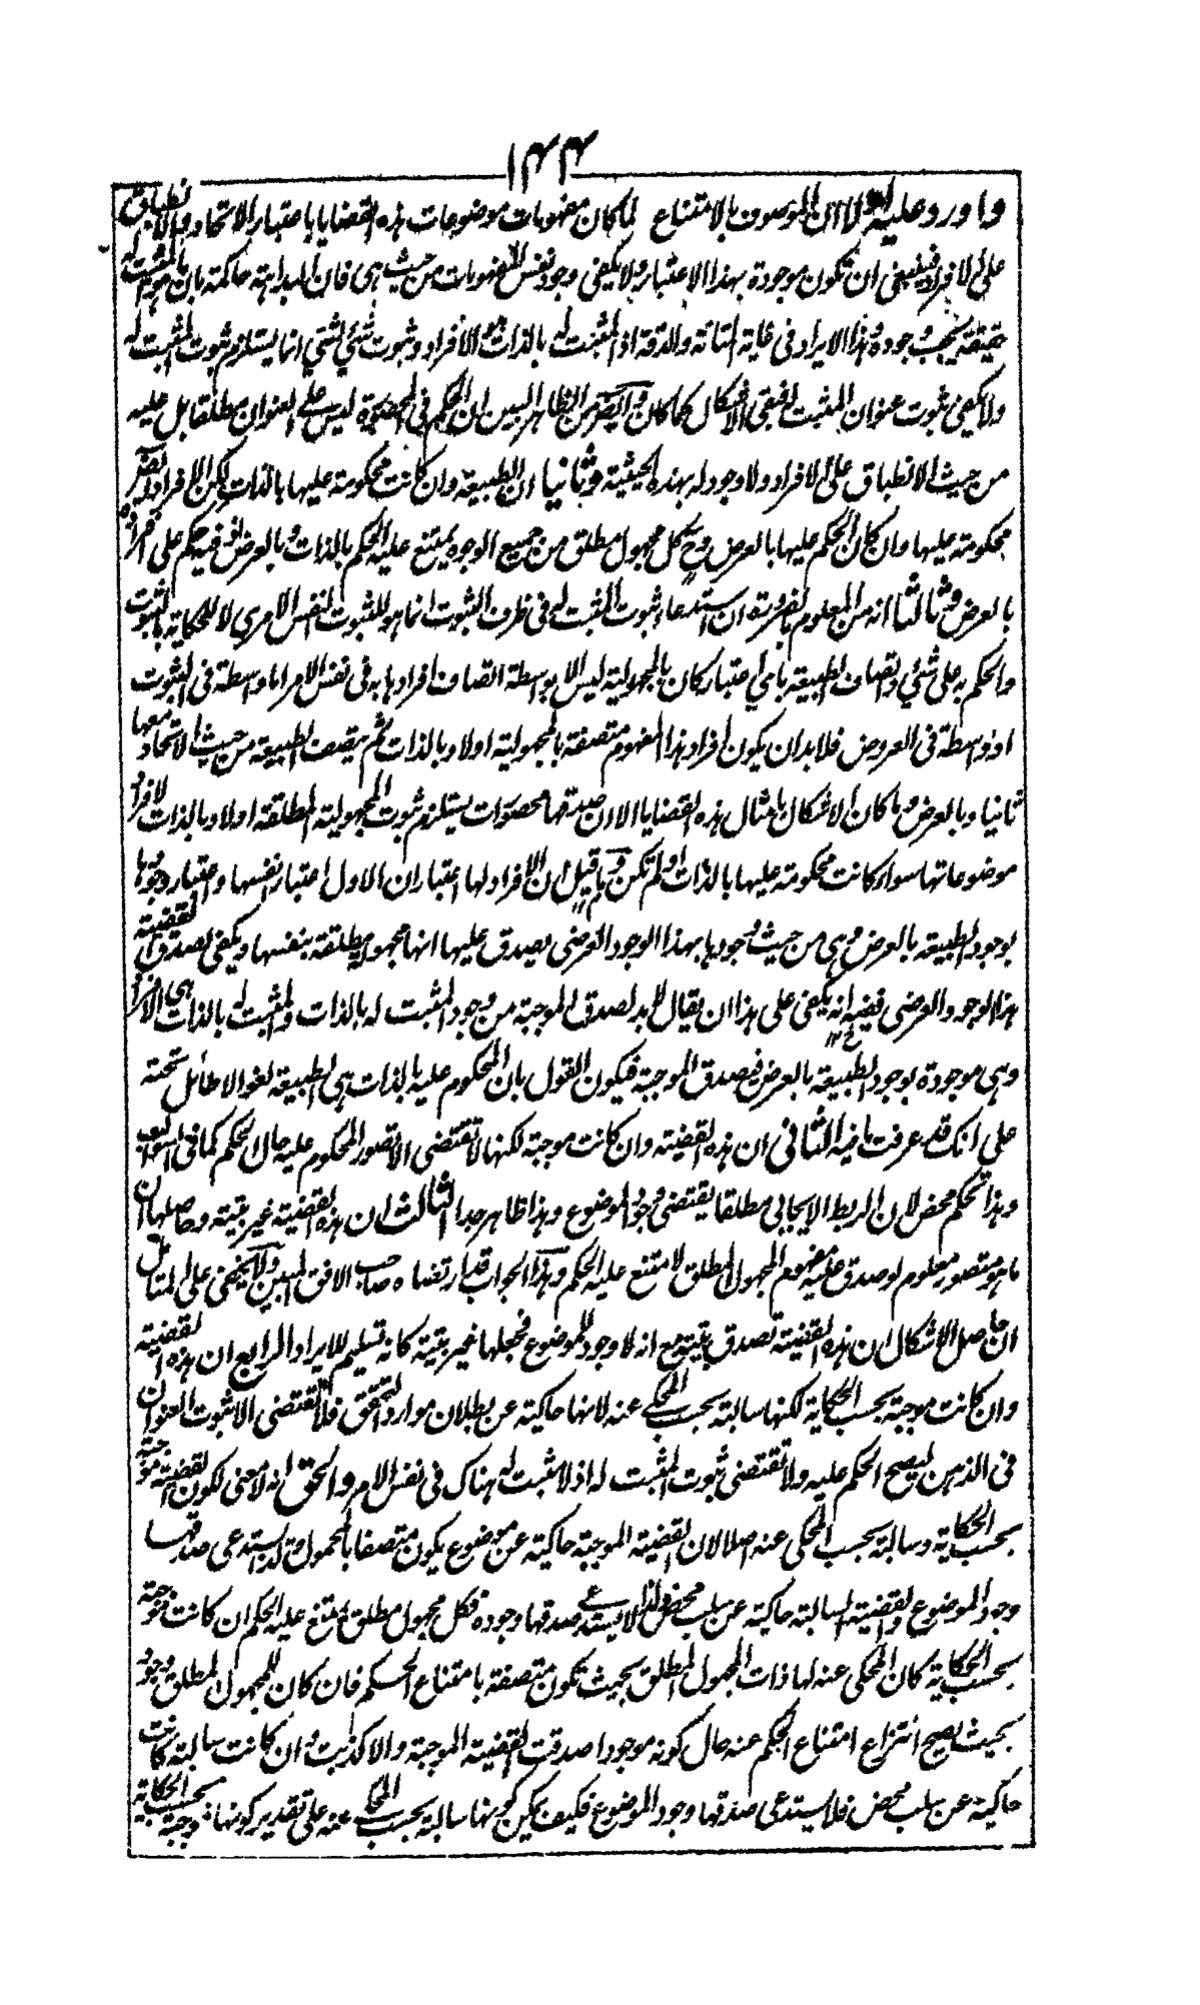 ١٤٤
واورد عليه اولا ان الموصوف بالامتناع لما كان مفهومات موضوعات هذه القضايا باعتبار الاتحاد والانطباق
على الافراد فينبغي ان تكون موجودة بهذا الاعتبار ولا يكفي وجود نفس المفهومات من حيث هي فان البداهة حاكمة بان المثبت له
حقيقة يجب وجوده وهذا الايراد في غاية المتانة والدقة اذ المثبت له بالذات هو الافراد وثبوت شئ لشئ انما يستلزم ثبوت المثبت له
ولا يكفي ثبوت عنوان المثبت له فبقي الاشكال كما كان وايضا من الظاهر البين ان الحكم في المحصورة ليس على العنوان مطلقا بل عليه
من حيث الانطباق على الافراد ولا وجود له بهذه الحيثية وثانيا ان الطبيعة وان كانت محكومة عليها بالذات لكن الافراد ايضا
محكومة عليها وان كان الحكم عليها بالعرض وح كل مجهول مطلق من جميع الوجوه يمتنع عليه الحكم بالذات وبالعرض ففيه حكم على افراده
بالعرض وثالثا انه من المعلوم بالضرورة ان استدعاء ثبوت المثبت له في ظرف الثبوت انما هو للثبوت النفس الامري لا للحكاية بالثبوت
والحكم به على شئ واتصاف الطبيعة باي اعتبار كان بالمجهولية ليس الا بواسطة اتصاف افرادها به في نفس الامر اما واسطة في الثبوت
او واسطة في العروض فلا بد ان يكون افراد هذا المفهوم متصفة بالمجهولية اولا وبالذات ثم يتصف الطبيعة من حيث الاتحاد معها
ثانيا وبالعرض وما كان الاشكال بامثال هذه القضايا الا ان صدقها محصورات يستلزم ثبوت المجهولية المطلقة اولا وبالذات لافراد
موضوعاتها سواء كانت محكومة عليها بالذات او لم تكن وما قيل ان الافراد لها اعتباران الاول اعتبار انفسها واعتبار وجودها
بوجود الطبيعة بالعرض وهي من حيث وجودها بهذا الوجود العرضي يصدق عليها انها مجهولة مطلقة بنفسها ويكفي لصدق القضية
هذا الوجود العرضي ففيه انه يكفي على هذا ان يقال لا بد لصدق الموجبة من وجود المثبت له بالذات والمثبت له بالذات هي الافراد
وهي موجودة بوجود الطبيعة بالعرض فيصدق الموجبة فيكون القول بان المحكوم عليه بالذات هي الطبيعة لغوا لا طائل تحته
على انك قد عرفت ما فيه الثاني ان هذه القضية وان كانت موجبة لكنها لا تقتضي الا تصور المحكوم عليه حال الحكم كما في السوالب
وهذا تحكم محض لان الربط الايجابي مطلقا يقتضي وجود الموضوع وهذا ظاهر جدا الثالث ان هذه القضية غير بتية وحاصلها ان
ما هو متصور معلوم لو صدق عليه مفهوم المجهول المطلق لامتنع عليه الحكم وهذا الجواب قد ارتضاه صاحب الافق المبين ولا يخفى على المتامل
ان حاصل الاشكال ان هذه القضية تصدق بتية مع انه لا وجود للموضوع فجعلها غير بتية كانه تسليم للايراد الرابع ان هذه القضية
وان كانت موجبة بحسب الحكاية لكنها سالبة بحسب المحكي عنه لانها حاكية عن بطلان موارد التحقق فلا تقتضي الا ثبوت العنوان
في الذهن ليصح الحكم عليه ولا تقتضي ثبوت المثبت له اذ لا مثبت له هناك في نفس الامر والحق انه لا معنى لكون القضية موجبة
بحسب الحكاية وسالبة بحسب المحكي عنه اصلا لان القضية الموجبة حاكية عن موضوع يكون متصفا بالمحمول ولذا يستدعي صدقها
وجود الموضوع والقضية السالبة حاكية عن سلب محض ولذا لا يستدعي صدقها وجوده فكل مجهول مطلق يمتنع عليه الحكم ان كانت موجبة
بحسب الحكاية كان المحكي عنه لها ذات المجهول المطلق بحيث تكون متصفة بامتناع الحكم فان كان للمجهول المطلق وجود
بحيث يصح انتزاع امتناع الحكم عنه حال كونه موجودا صدقت القضية الموجبة والا كذبت وان كانت سالبة كانت
حاكية عن سلب محض فلا يستدعي صدقها وجود الموضوع فكيف يمكن كونها سالبة بحسب المحكي عنه على تقدير كونها موجبة بحسب الحكاية